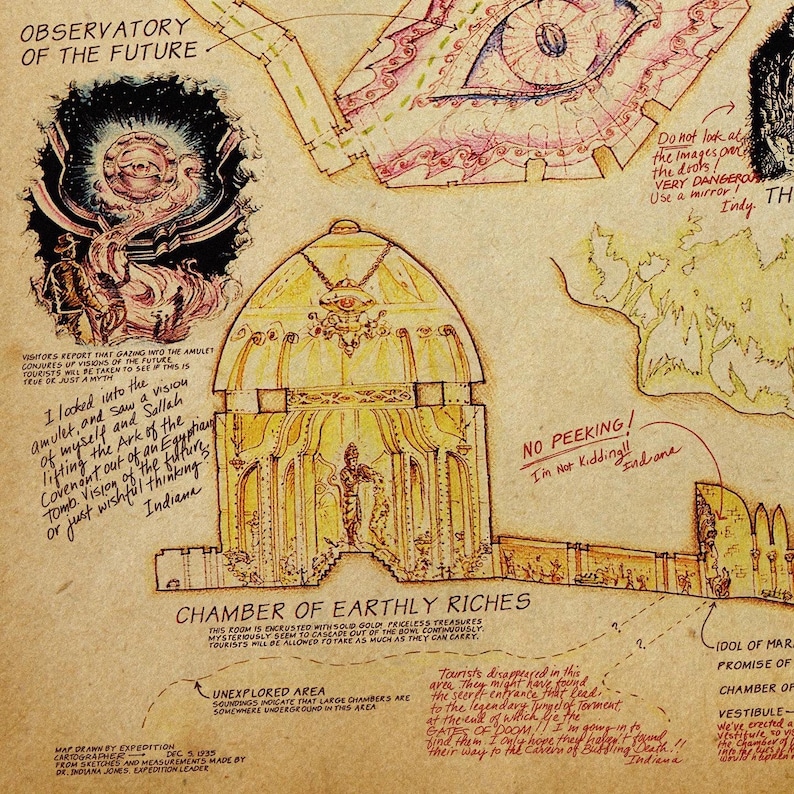 OBSERVATORY
OF THE FUTURE
Do not look at
the images over
the doors!
VERY DANGEROUS
Use a mirror!
Indy.
TH
VISITORS REPORT THAT GAZING INTO THE AMULET
CONJURES UP VISIONS OF THE FUTURE.
TOURISTS WILL BE TAKEN TO SEE IF THIS IS
TRUE OR JUST A MYTH.
I looked into the
amulet, and saw a vision
of myself and Sallah
lifting the Ark of the
Covenant out of an Egyptian
Tomb. Vision of the future,
or just wishful thinking?
Indiana
NO PEEKING!
I'm Not Kidding!!
Indiana
CHAMBER OF EARTHLY RICHES
THIS ROOM IS ENCRUSTED WITH SOLID GOLD! PRICELESS TREASURES
MYSTERIOUSLY SEEM TO CASCADE OUT OF THE BOWL CONTINUOUSLY.
TOURISTS WILL BE ALLOWED TO TAKE AS MUCH AS THEY CAN CARRY.
?
?
IDOL OF MAR
PROMISE OF
CHAMBER OF
VESTIBULE
We've erected a
vestibule, so vi
the chamber of
into the eyes of
would
UNEXPLORED AREA
SOUNDINGS INDICATE THAT LARGE CHAMBERS ARE
SOMEWHERE UNDERGROUND IN THIS AREA
Tourists disappeared in this
area. They might have found
the secret entrance that lead
to the legendary Tunnel of Torment,
at the end of which lie the
GATES OF DOOM!! I'm going in to
find them. I only hope they haven't found
their way to the Cavern of Bubbling Death!!
Indiana
MAP DRAWN BY EXPEDITION
CARTOGRAPHER → DEC 5, 1935
FROM SKETCHES AND MEASUREMENTS MADE BY
DR. INDIANA JONES, EXPEDITION LEADER